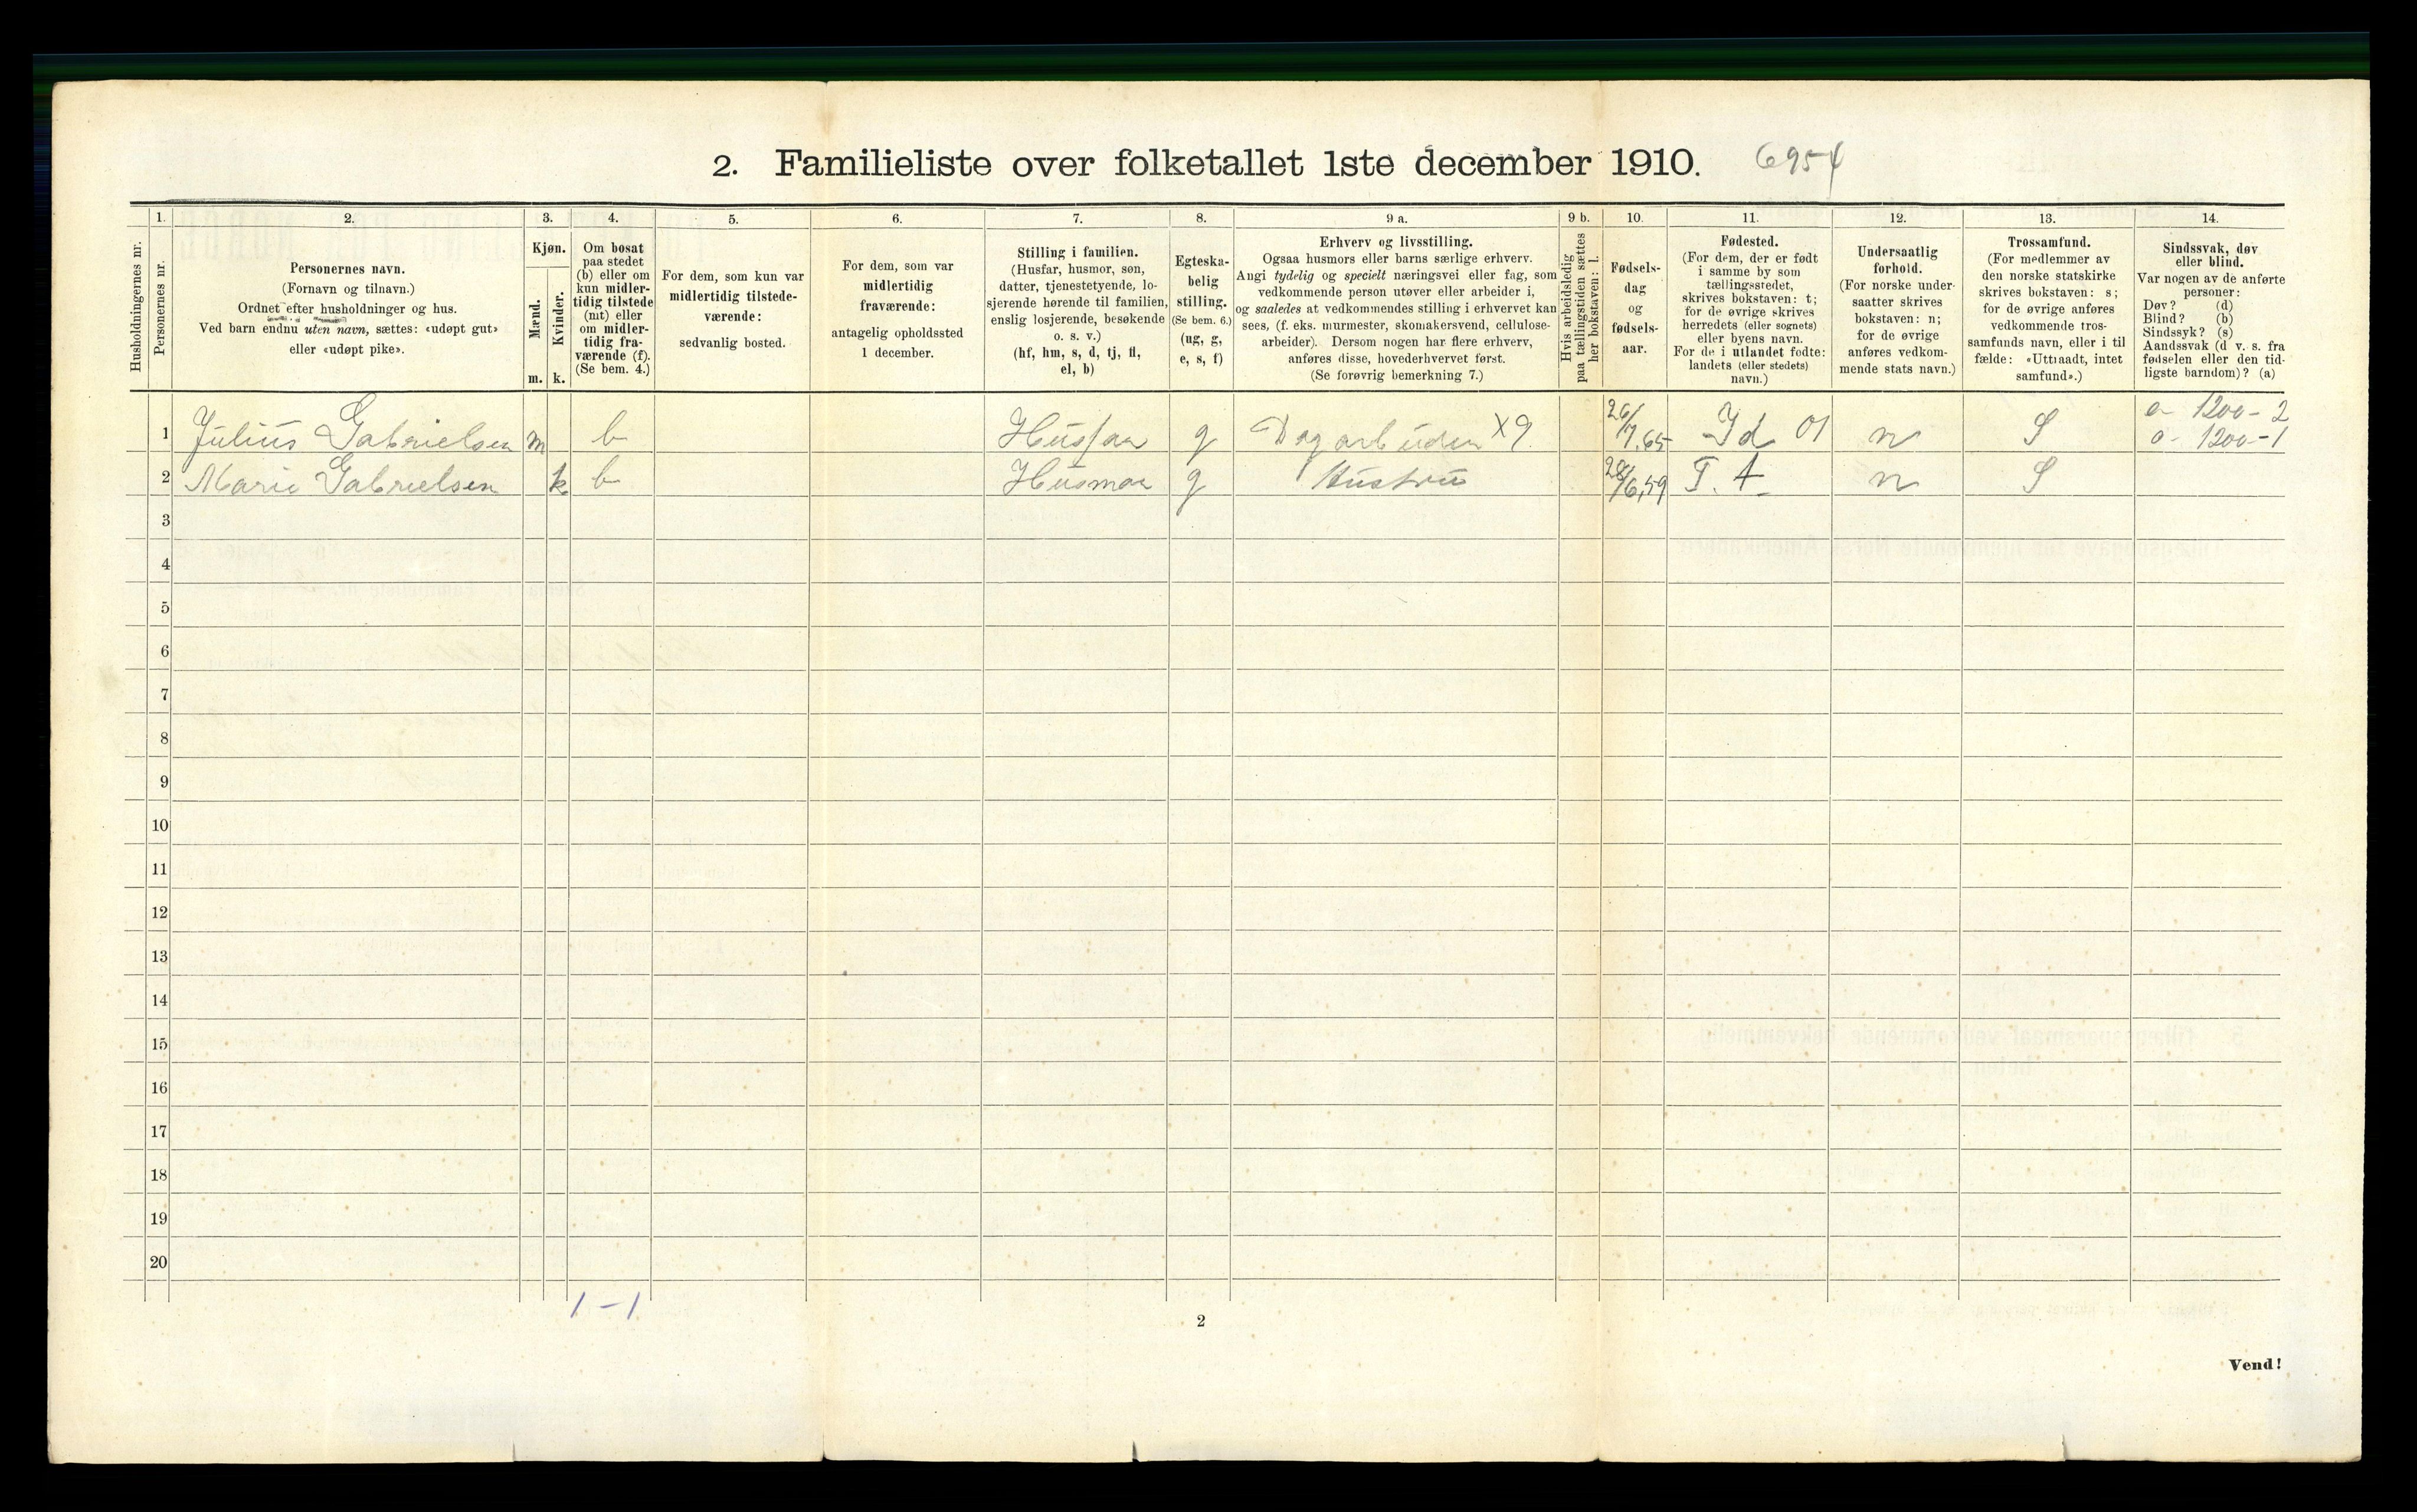 2. Familieliste over folketallet 1ste december 1910. 6954
Husholdningernes nr.
1.
Personernes nr.
2.
Personernes navn.
(Fornavn og tilnavn.)
Ordnet efter husholdninger og hus.
Ved barn endnu uten navn, sættes: «udøpt gut»
eller «udøpt pike».
3.
Kjøn.
Mænd.
m.
Kvinder.
k.
4.
Om bosat
paa stedet
(b) eller om
kun midler-
tidig tilstede
(mt) eller
om midler-
tidig fra-
værende (f).
(Se bem. 4.)
5.
For dem, som kun var
midlertidig tilstede-
værende:
sedvanlig bosted.
6.
For dem, som var
midlertidig
fraværende:
antagelig opholdssted
1 december.
7.
Stilling i familien.
(Husfar, husmor, søn,
datter, tjenestetyende, lo-
sjerende hørende til familien,
enslig losjerende, besøkende
o. s. v.)
(hf, hm, s, d, tj, fl,
el, b)
8.
Egteska-
belig
stilling.
(Se bem. 6.)
(ug, g,
e, s, f)
9 a.
Erhverv og livsstilling.
Ogsaa husmors eller barns særlige erhverv.
Angi tydelig og specielt næringsvei eller fag, som
vedkommende person utøver eller arbeider i,
og saaledes at vedkommendes stilling i erhvervet kan
sees, (f. eks. murmester, skomakersvend, cellulose-
arbeider). Dersom nogen har flere erhverv,
anføres disse, hovederhvervet først.
(Se forøvrig bemerkning 7.)
9 b.
Hvis arbeidsledig
paa tællingstiden sættes
her bokstaven: l.
10.
Fødsels-
dag
og
fødsels-
aar.
11.
Fødested.
(For dem, der er født
i samme by som
tællingsstedet,
skrives bokstaven: t;
for de øvrige skrives
herredets (eller sognets)
eller byens navn.
For de i utlandet fødte:
landets (eller stedets)
navn.)
12.
Undersaatlig
forhold.
(For norske under-
saatter skrives
bokstaven: n;
for de øvrige
anføres vedkom-
mende stats navn.)
13.
Trossamfund.
(For medlemmer av
den norske statskirke
skrives bokstaven: s;
for de øvrige anføres
vedkommende tros-
samfunds navn, eller i til
fælde: «Uttraadt, intet
samfund».)
14.
Sindssvak, døv
eller blind.
Var nogen av de anførte
personer:
Døv? (d)
Blind? (b)
Sindssyk? (s)
Aandssvak (d. v. s. fra
fødselen eller den tid-
ligste barndom)? (a)
1 Julius Gabrielsen m b Husfar g Dagarbeider X9. 26/7,65 Id 01 n S 0- 1200-2
0- 1200-1
2 Marie Gabrielsen k b Husmor g Hustru 28/6,59 T. A. n S
3
4
5
6
7
8
9
10
11
12
13
14
15
16
17
18
19
20
1-1
2
Vend!